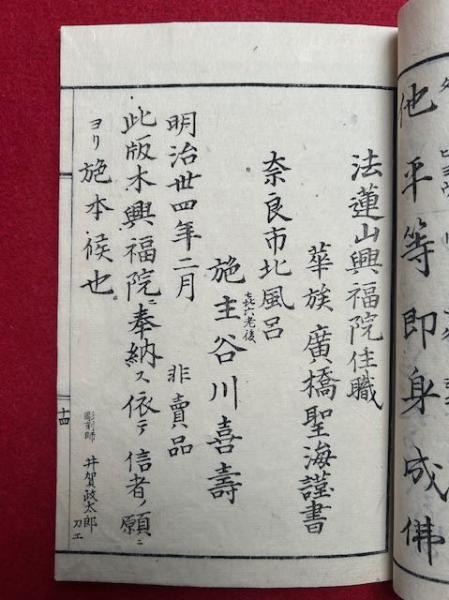 他平等即身成佛
法蓮山興福院住職
華族廣橋聖海謹書
奈良市北風呂
喜六老後
施主谷川喜壽
明治丗四年二月 非賣品
此版木興福院ニ奉納ス依テ信者ノ願ニ
ヨリ施本候也
十四
彫刻師 井賀政太郎
刀工